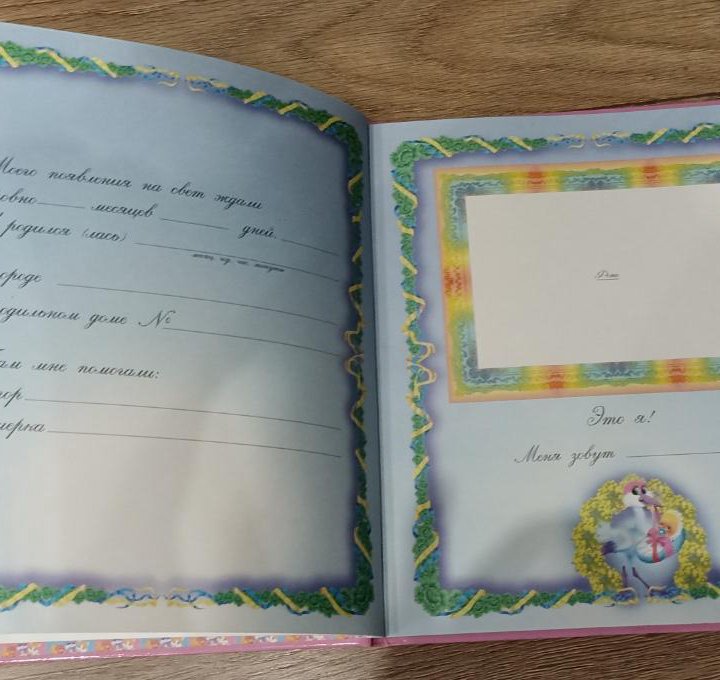 Моего появления на свет ждали
овно____ месяцев ______ дней.
родился (лась)
ороде
одильном доме №
ам мне помогали:
тор
шерка
Фото
Это я!
Меня зовут